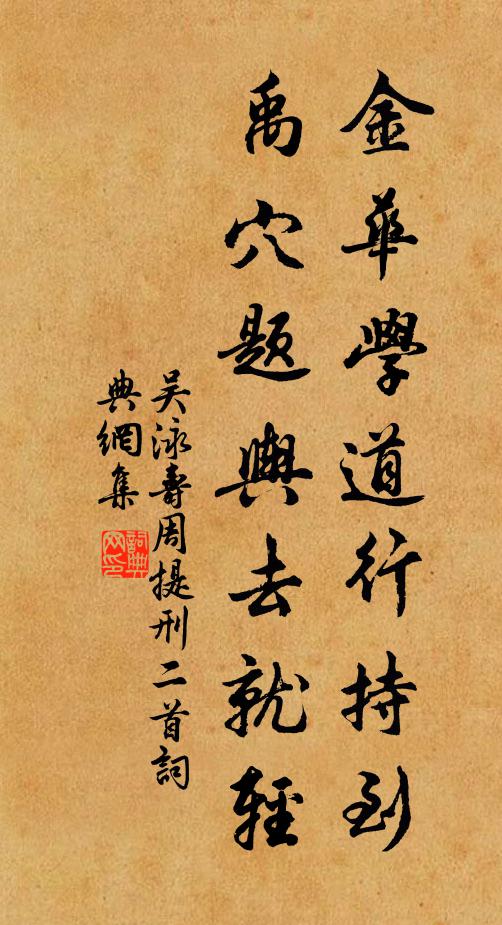 金華學道行持到
禹穴題輿去就輕
吴泳壽周提刑二首詞
典網集
詞典网印